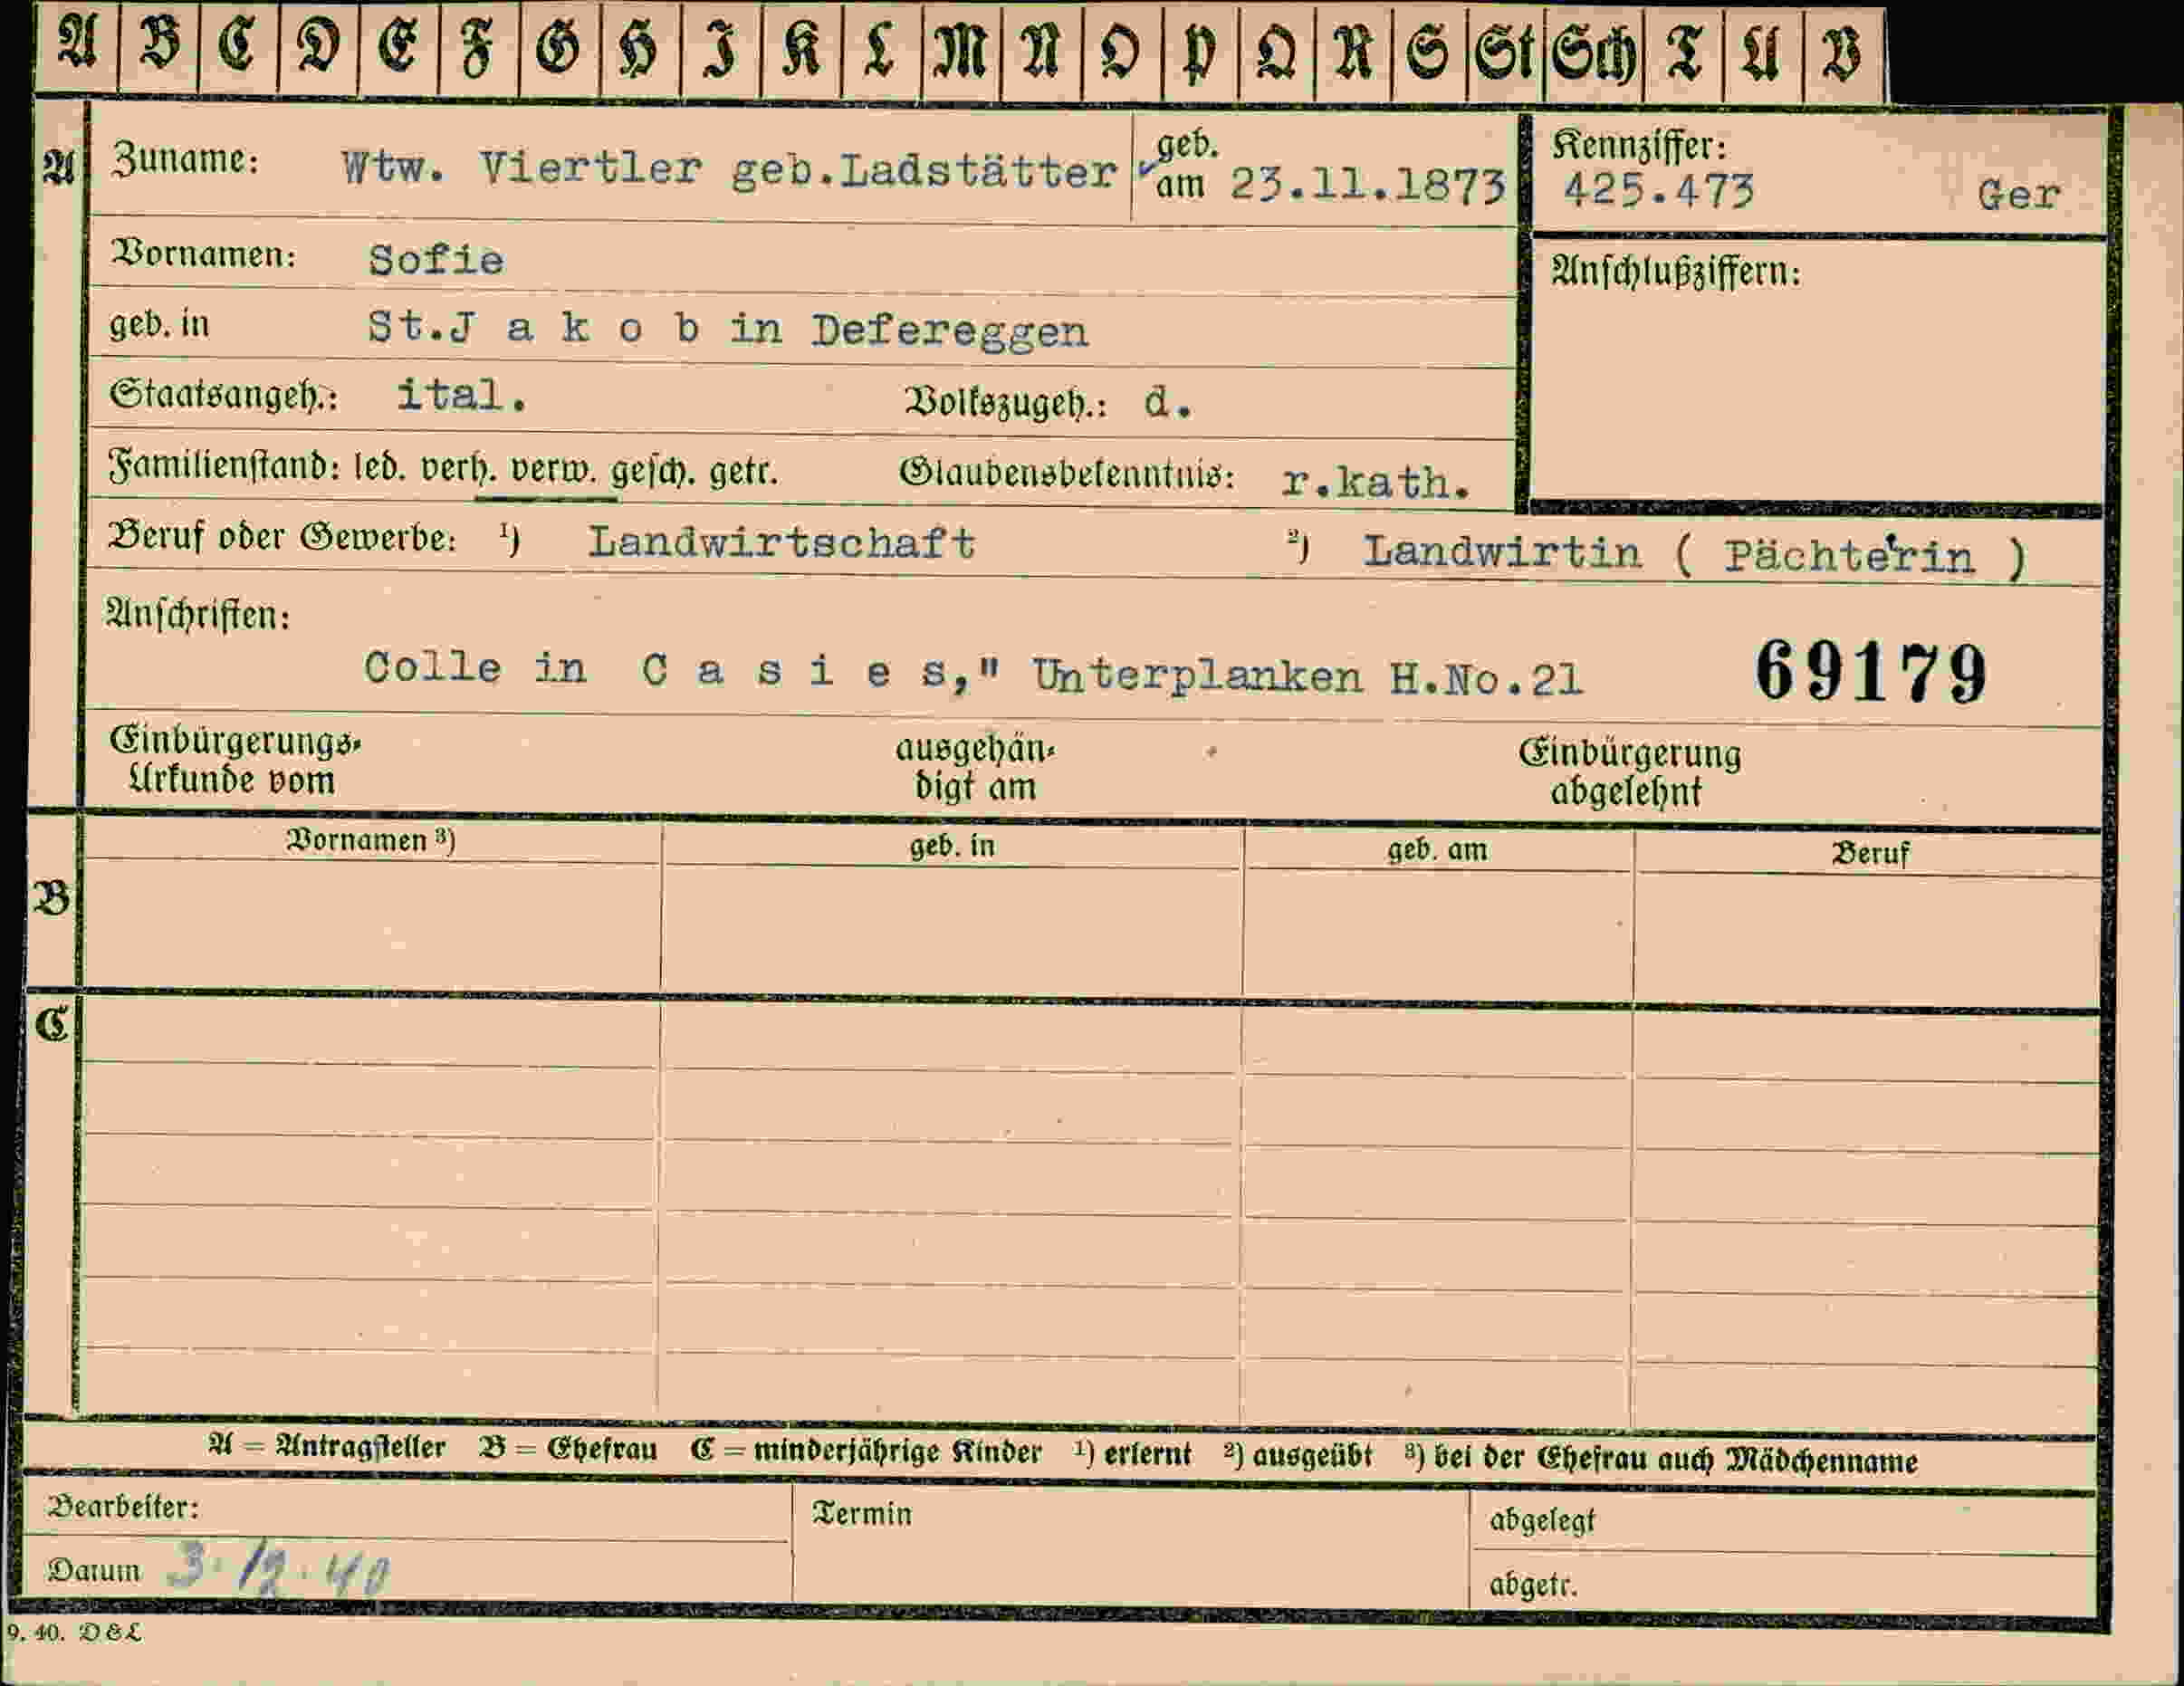 A B C D E F G H I K L M N O P Q R S St Sch T U V
A Zuname: Wtw. Viertler geb.Ladstätter geb. am 23.11.1873 Kennziffer: 425.473 Ger
Vornamen: Sofie Anschlußziffern:
geb. in St.J a k o b in Defereggen
Staatsangeh.: ital. Volkszugeh.: d.
Familienstand: led. verh. verw. gesch. getr. Glaubensbekenntnis: r.kath.
Beruf oder Gewerbe: ¹) Landwirtschaft ²) Landwirtin ( Pächterin )
Anschriften:
Colle in C a s i e s," Unterplanken H.No.21 69179
Einbürgerungs- ausgehän- Einbürgerung
Urkunde vom digt am abgelehnt
Vornamen ³) geb. in geb. am Beruf
B
C
A = Antragsteller B = Ehefrau C = minderjährige Kinder ¹) erlernt ²) ausgeübt ³) bei der Ehefrau auch Mädchenname
Bearbeiter: Termin abgelegt
Datum 3.12.40 abgetr.
9. 40. D&L